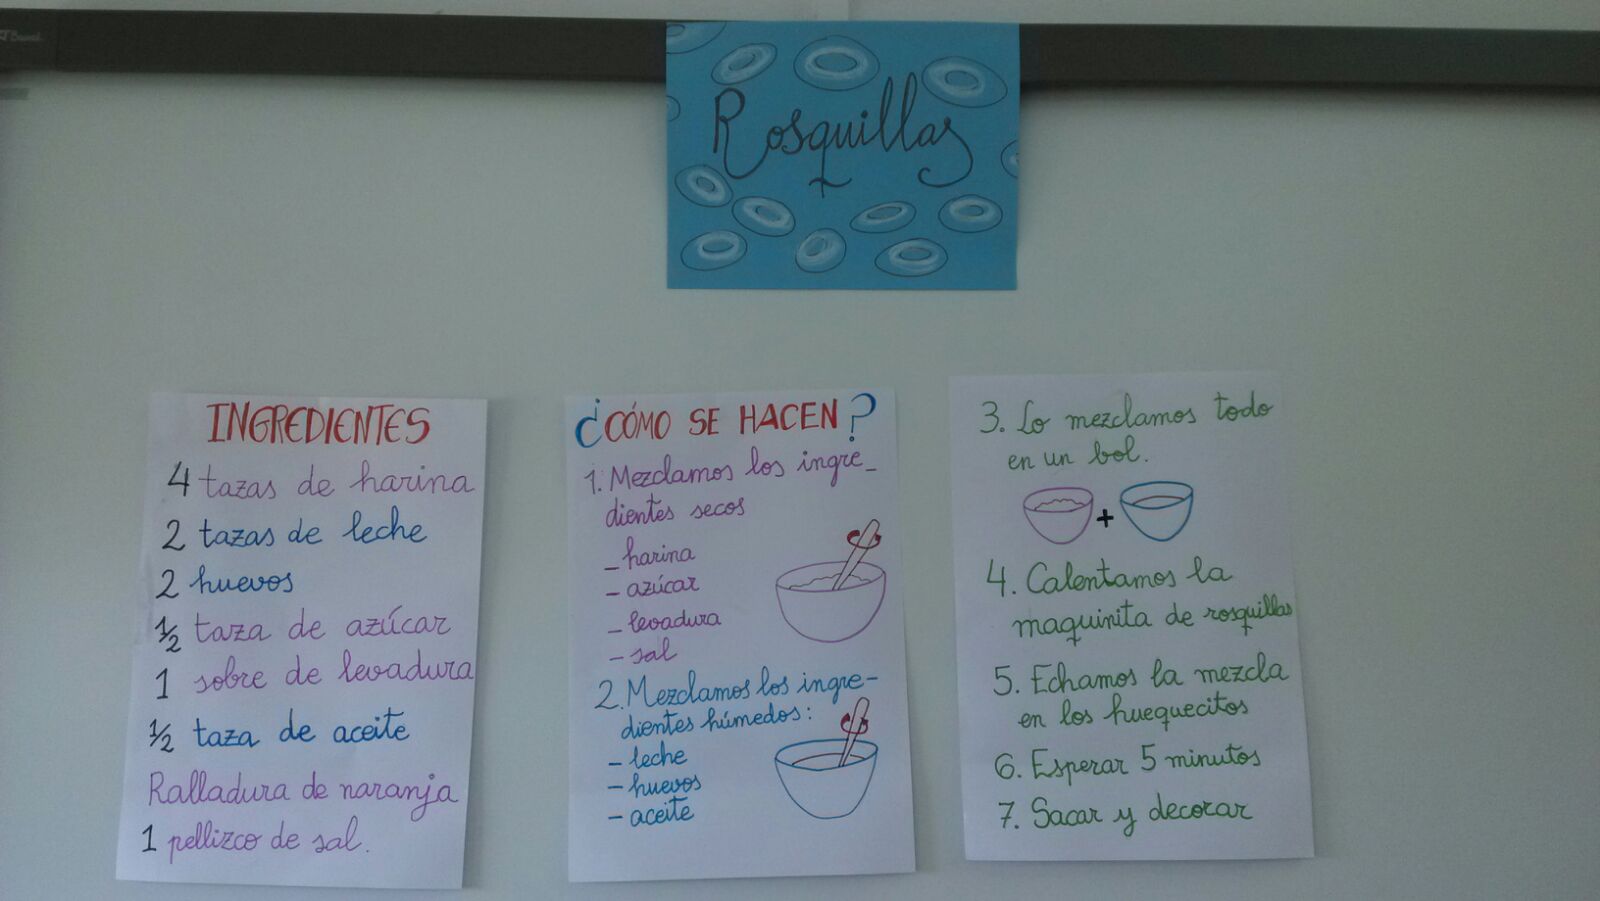 Rosquillas
INGREDIENTES
4 tazas de harina
2 tazas de leche
2 huevos
½ taza de azúcar
1 sobre de levadura
½ taza de aceite
Ralladura de naranja
1 pellizco de sal.
¿CÓMO SE HACEN?
1. Mezclamos los ingre_
dientes secos
_ harina
- azúcar
_ levadura
- sal
2. Mezclamos los ingre-
dientes húmedos:
- leche
- huevos
- aceite
3. Lo mezclamos todo
en un bol.
+
4. Calentamos la
maquinita de rosquillas
5. Echamos la mezcla
en los huequecitos
6. Esperar 5 minutos
7. Sacar y decorar